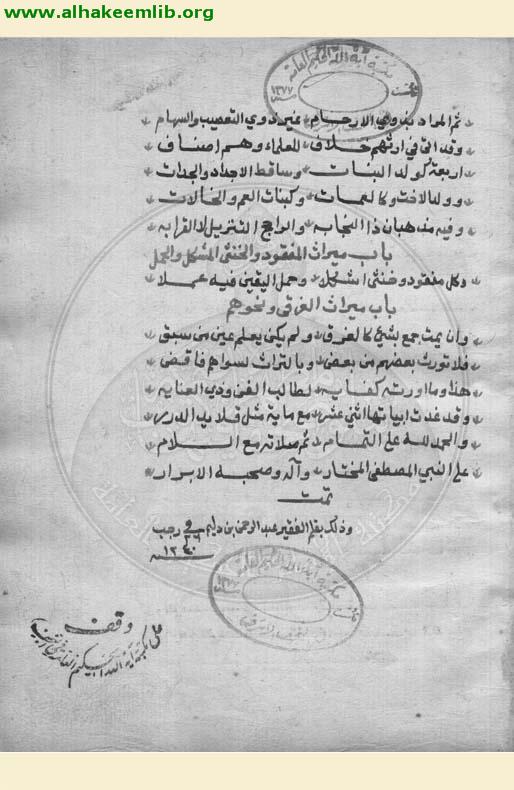 www.alhakeemlib.org
مكتبة آية الله الحكيم العامة
١٣٧٧
ثم المراد بذوي الارحام غير ذوي التعصيب والسهام
وقد اتى في ارثهم خلاف للعلماء وهم اصناف
اربعة كولد البنات وساقط الاجداد والجدات
وولد الاخت وكالعمات وكبنات العم والخالات
وفيه مذهبان ذا النجابه والراجح التنزيل لا القرابه
باب ميراث المفقود والخنثى المشكل والحمل
وكل مفقود وخنثى اشكلا وحمل اليقين فيه عملا
باب ميراث الغرقى ونحوهم
وان يمت جمع بشيئ كالغرق ولم يكن يعلم عين من سبق
فلا تورث بعضهم من بعض وبالتراث لسواهم فاقض
هذا وما اوردته كفايه لطالب الفن وذي العنايه
وقد غدت ابياتها اثني عشر مع ماية مثل قلايد الدرر
والحمد لله على التمام ثم صلاته مع السلام
على النبي المصطفى المختار وآله وصحبه الابرار
تمت
وذلك بقلم الفقير عبد الرحمن بن في رجب
١٢٤٠
مكتبة آية الله الحكيم العامة
وقف
على مكتبة آية الله الحكيم العامة